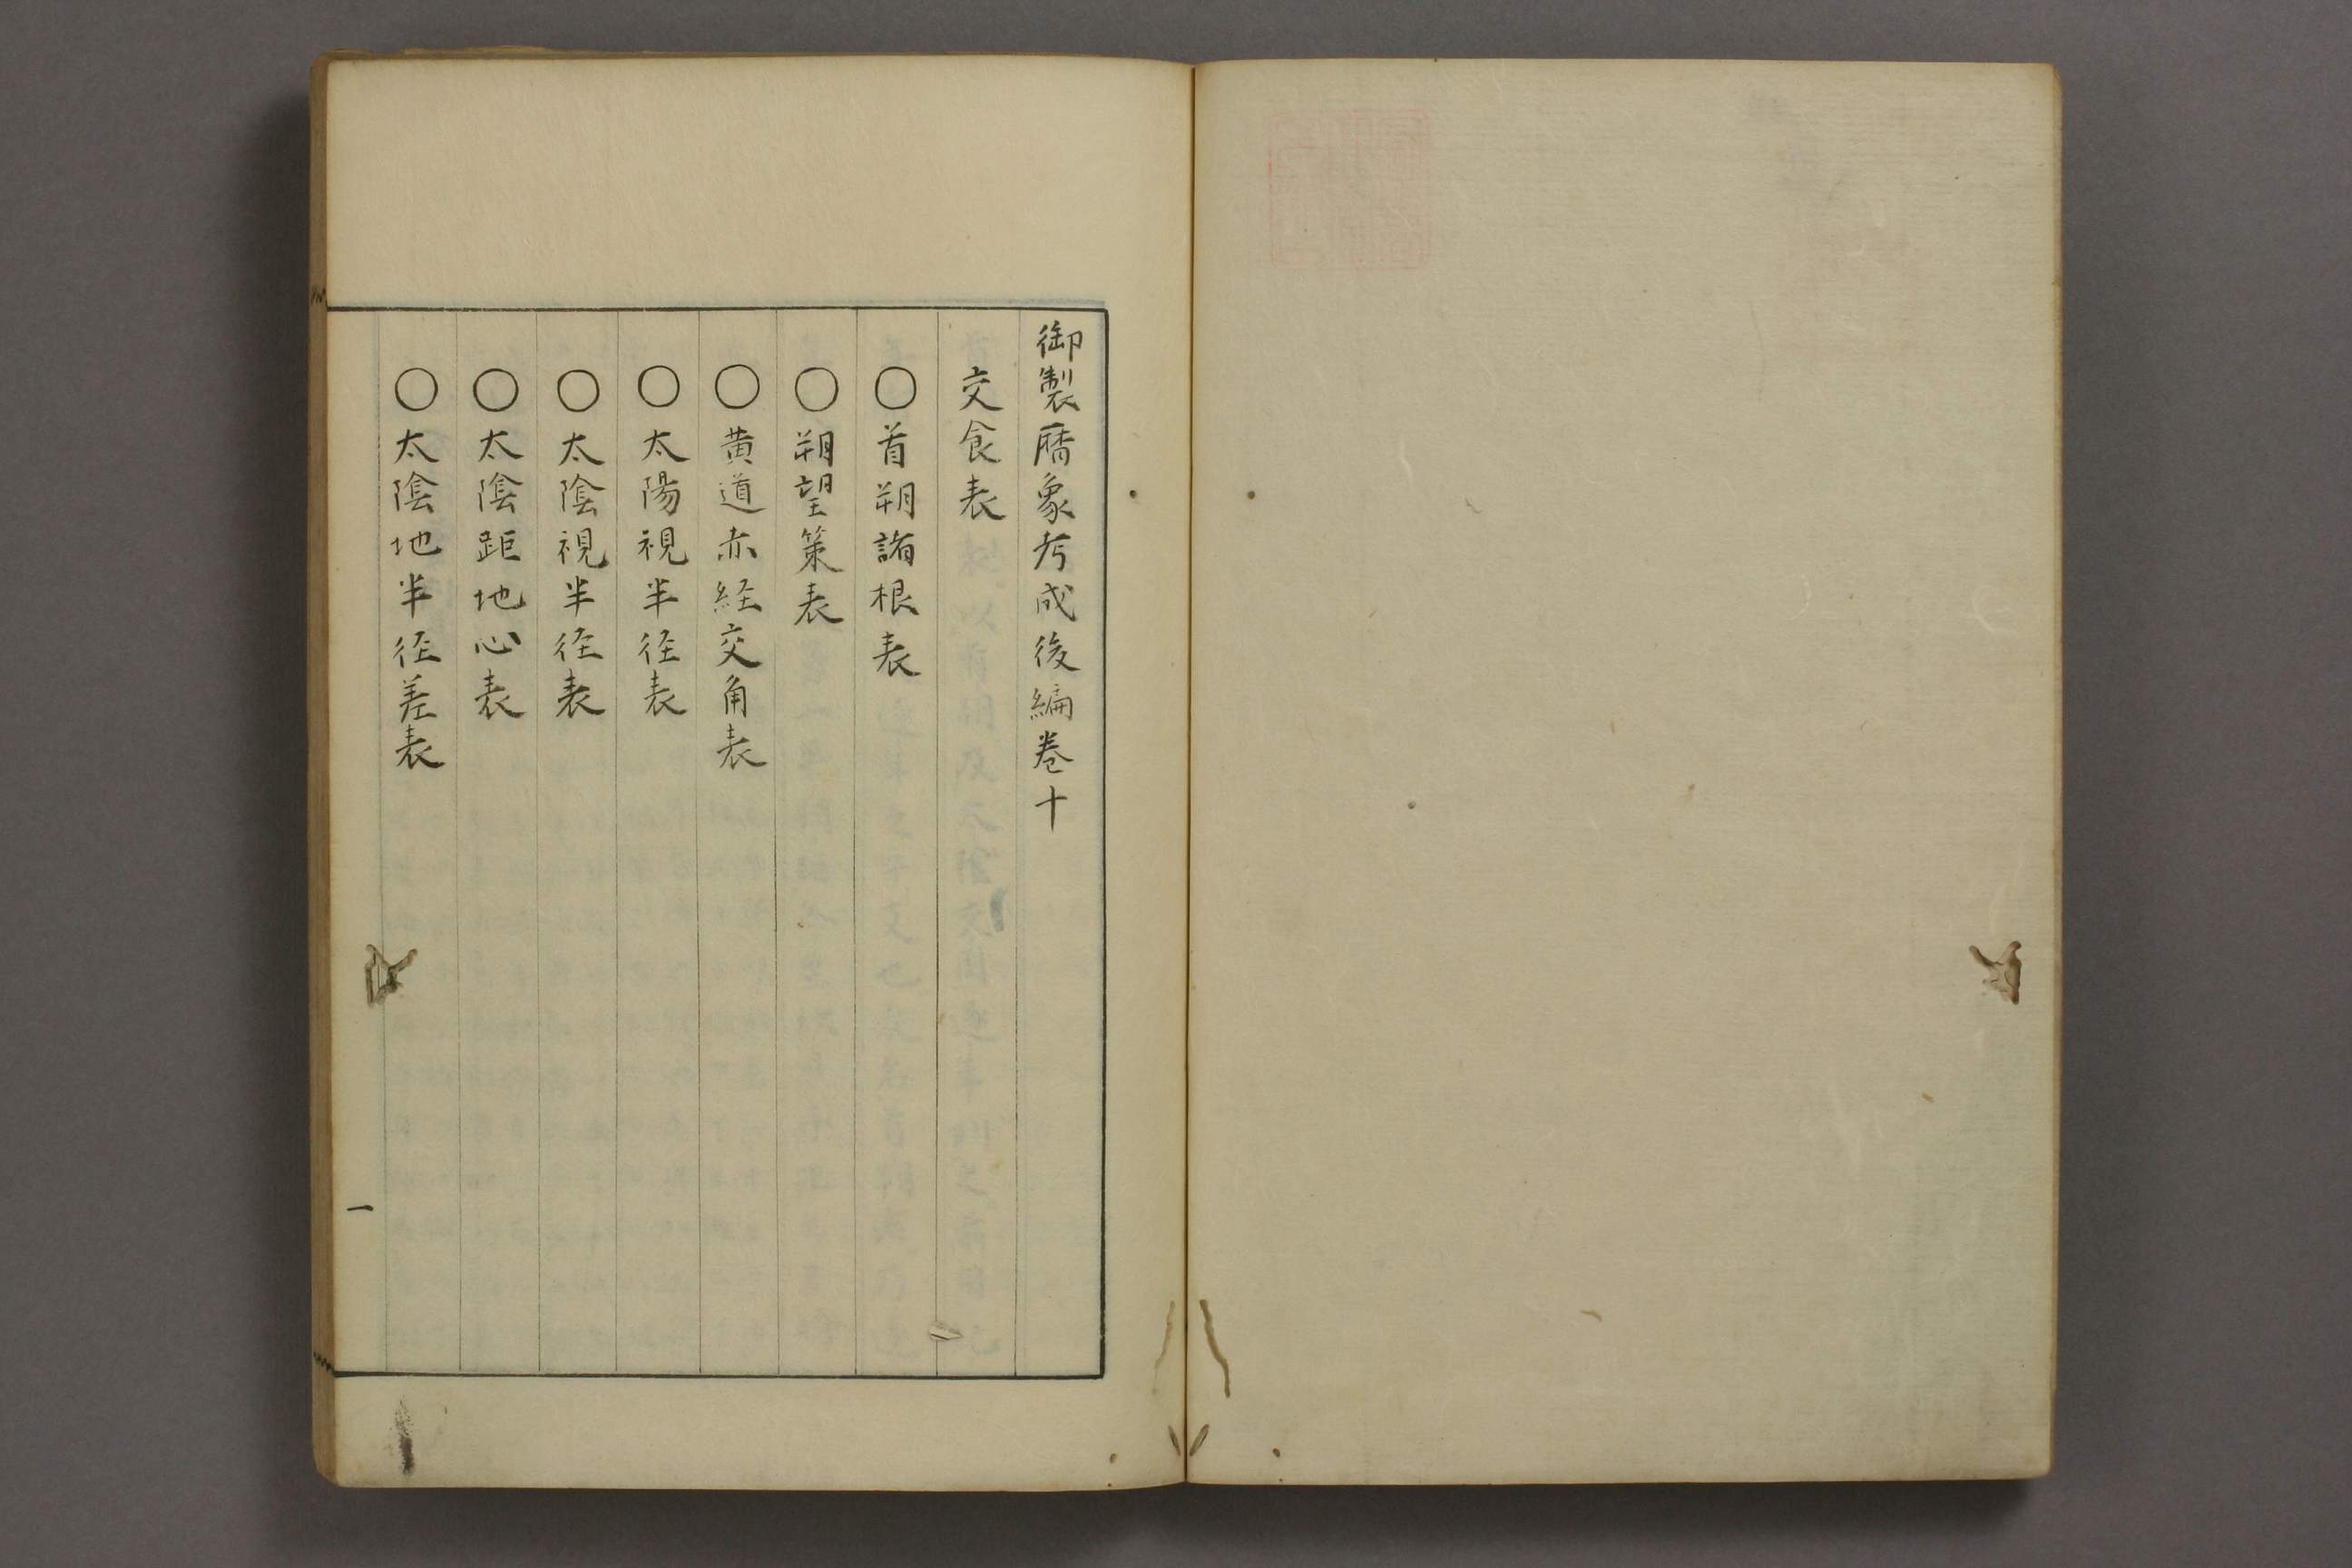 御製厤象考成後編卷十
交食表
○首朔諸根表
○朔望策表
○黄道赤経交角表
○太陽視半径表
○太陰視半径表
○太陰距地心表
○太陰地半径差表
一